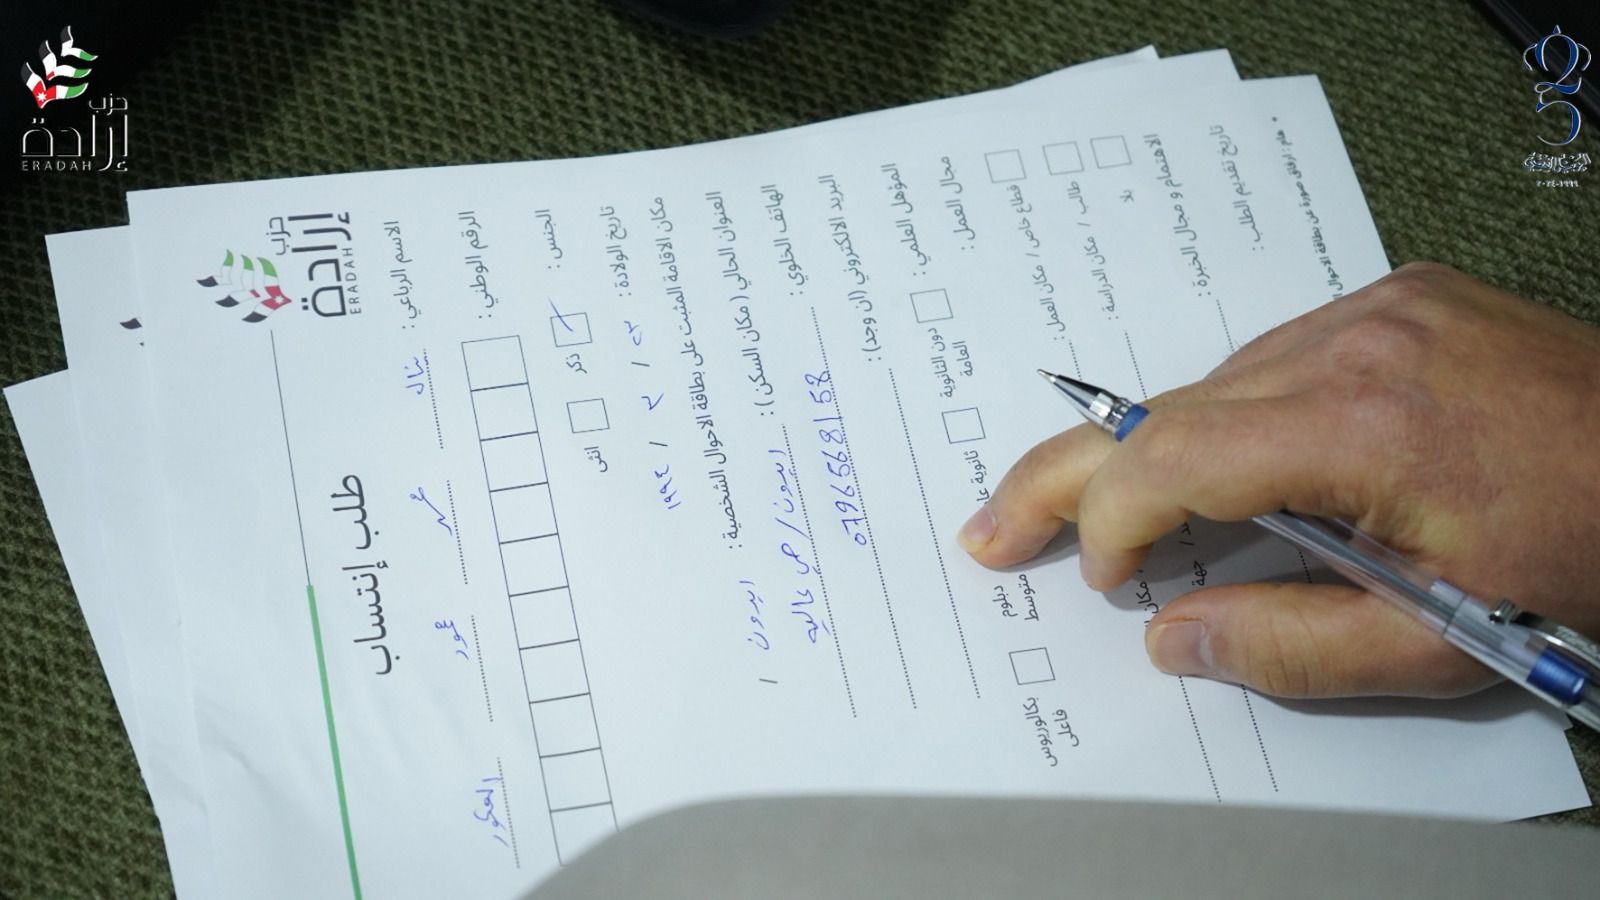 حزب
إرادة
ERADAH
Q25
١٩٩٩-٢٠٢٤
حزب
إرادة
ERADAH
طلب إنتساب
الاسم الرباعي :
الرقم الوطني :
الجنس : ذكر انثى
تاريخ الولادة : ٢٣ / ٢ / ١٩٩٤
مكان الاقامة المثبت على بطاقة الاحوال الشخصية : ايدون /
العنوان الحالي ( مكان السكن ) : ايدون /
الهاتف الخلوي : 0796568158
البريد الالكتروني (ان وجد) :
المؤهل العلمي : دون الثانوية العامة ثانوية دبلوم متوسط بكالوريوس فاعلى
مجال العمل :
قطاع خاص / مكان العمل :
طالب / مكان الدراسة :
بلا
الاهتمام و مجال الخبرة :
تاريخ تقديم الطلب :
* هام : ارفاق صورة عن بطاقة الاحوال